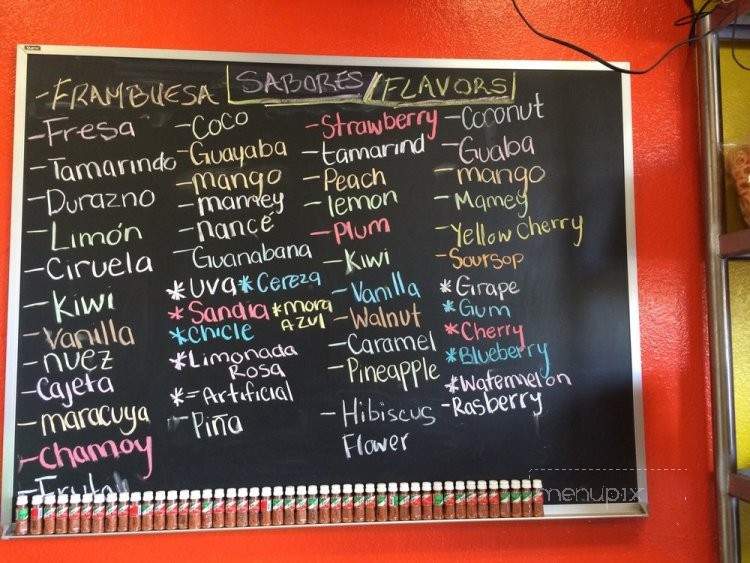 SABORES / FLAVORS
-FRAMBUESA
-Fresa
-Tamarindo
-Durazno
-Limón
-Ciruela
-Kiwi
-Vanilla
-nuez
-Cajeta
-maracuya
-Chamoy
-Fruta
-Coco
-Guayaba
-mango
-mamey
-nancé
-Guanabana
*Uva *Cereza
*Sandia *mora
AZUL
*Chicle
*Limonada
Rosa
*=Artificial
-Piña
-Strawberry
-tamarind
-Peach
-lemon
-Plum
-Kiwi
-Vanilla
-Walnut
-Caramel
-Pineapple
-Hibiscus
Flower
-Coconut
-Guaba
-mango
-Mamey
-Yellow Cherry
-Soursop
*Girape
*Gum
*Cherry
*Blueberry
*Watermelon
-Rasberry
menupix